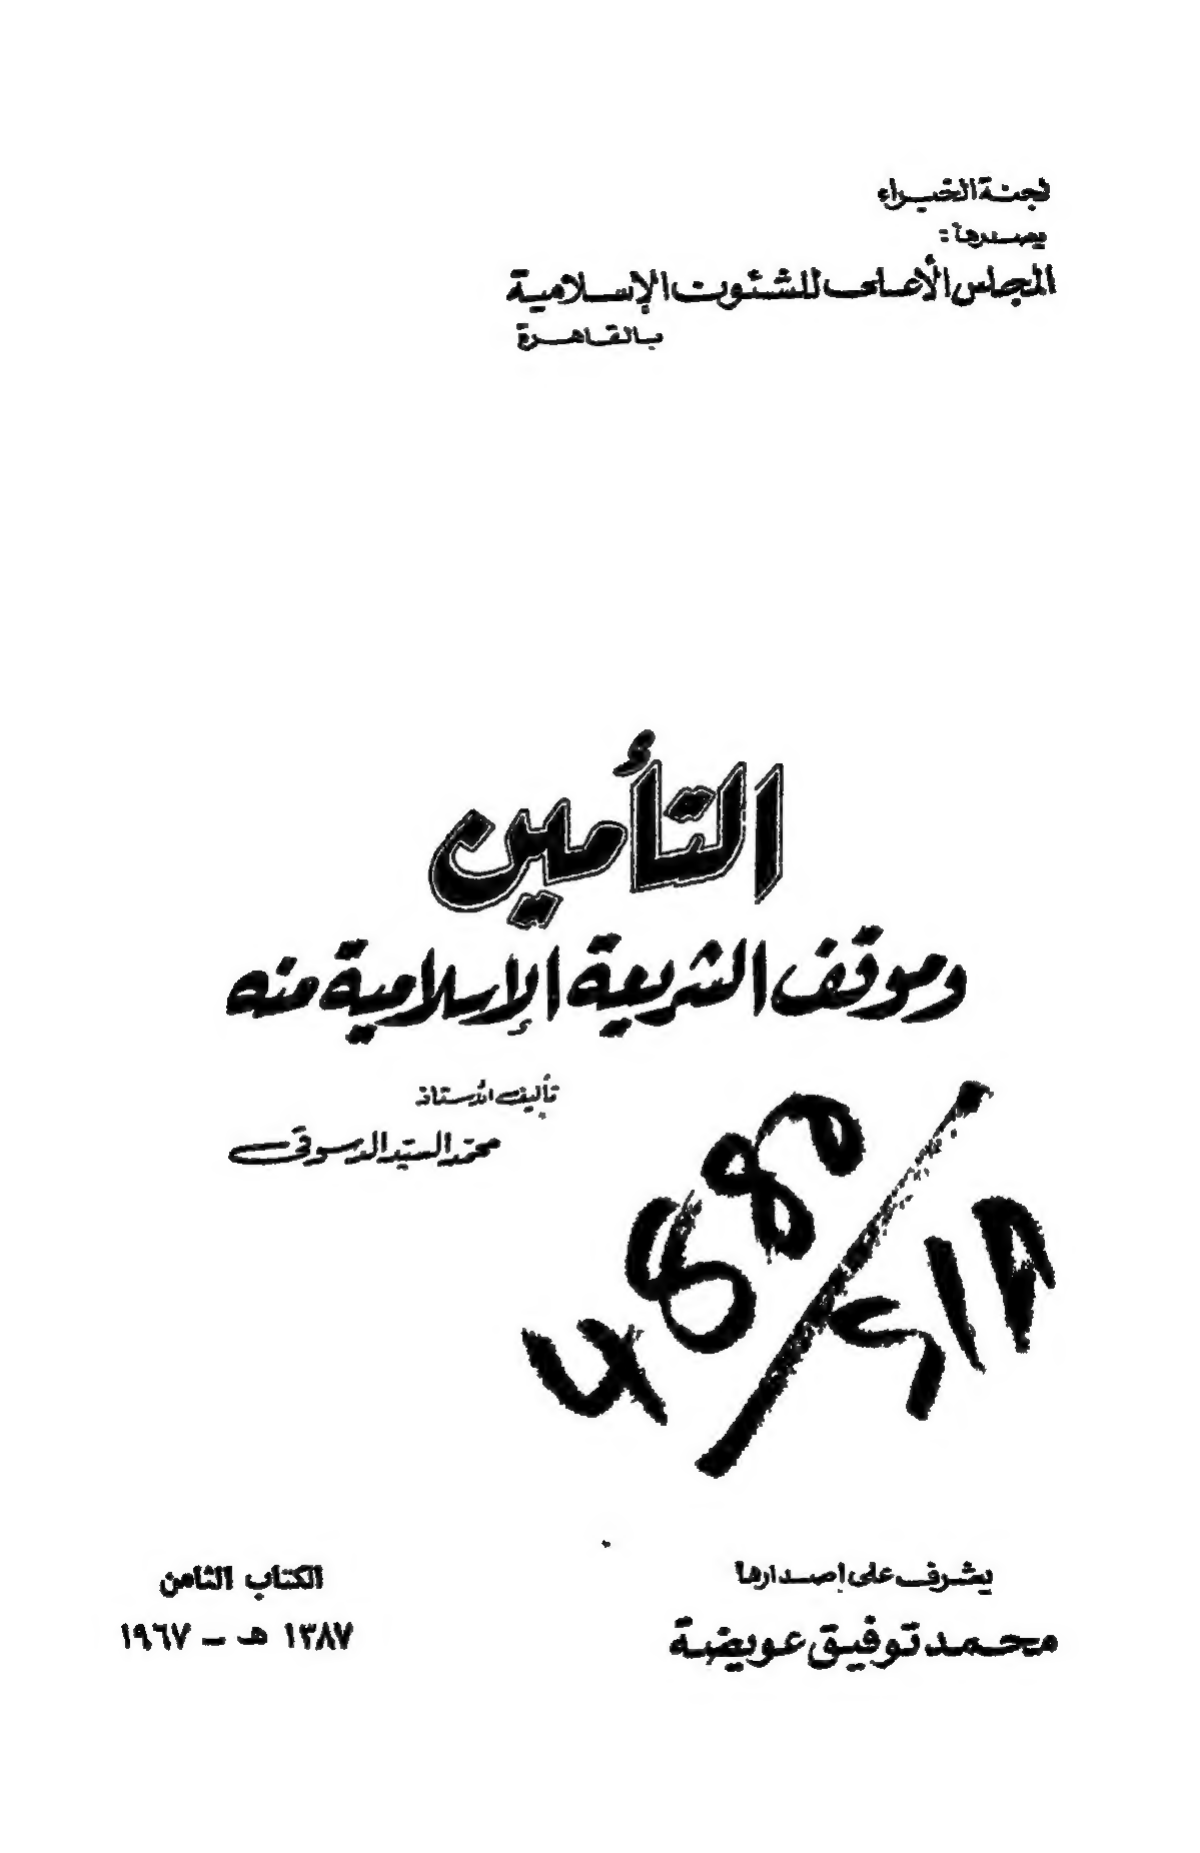 لجنة الخبراء
يصدرها:
المجلس الأعلى للشئون الإسلامية
بالقاهرة
التأمين
وموقف الشريعة الإسلامية منه
تأليف الأستاذ
محمد السيد الدسوقى
يشرف على إصدارها
محمد توفيق عويضة
الكتاب الثامن
١٣٨٧ هـ - ١٩٦٧